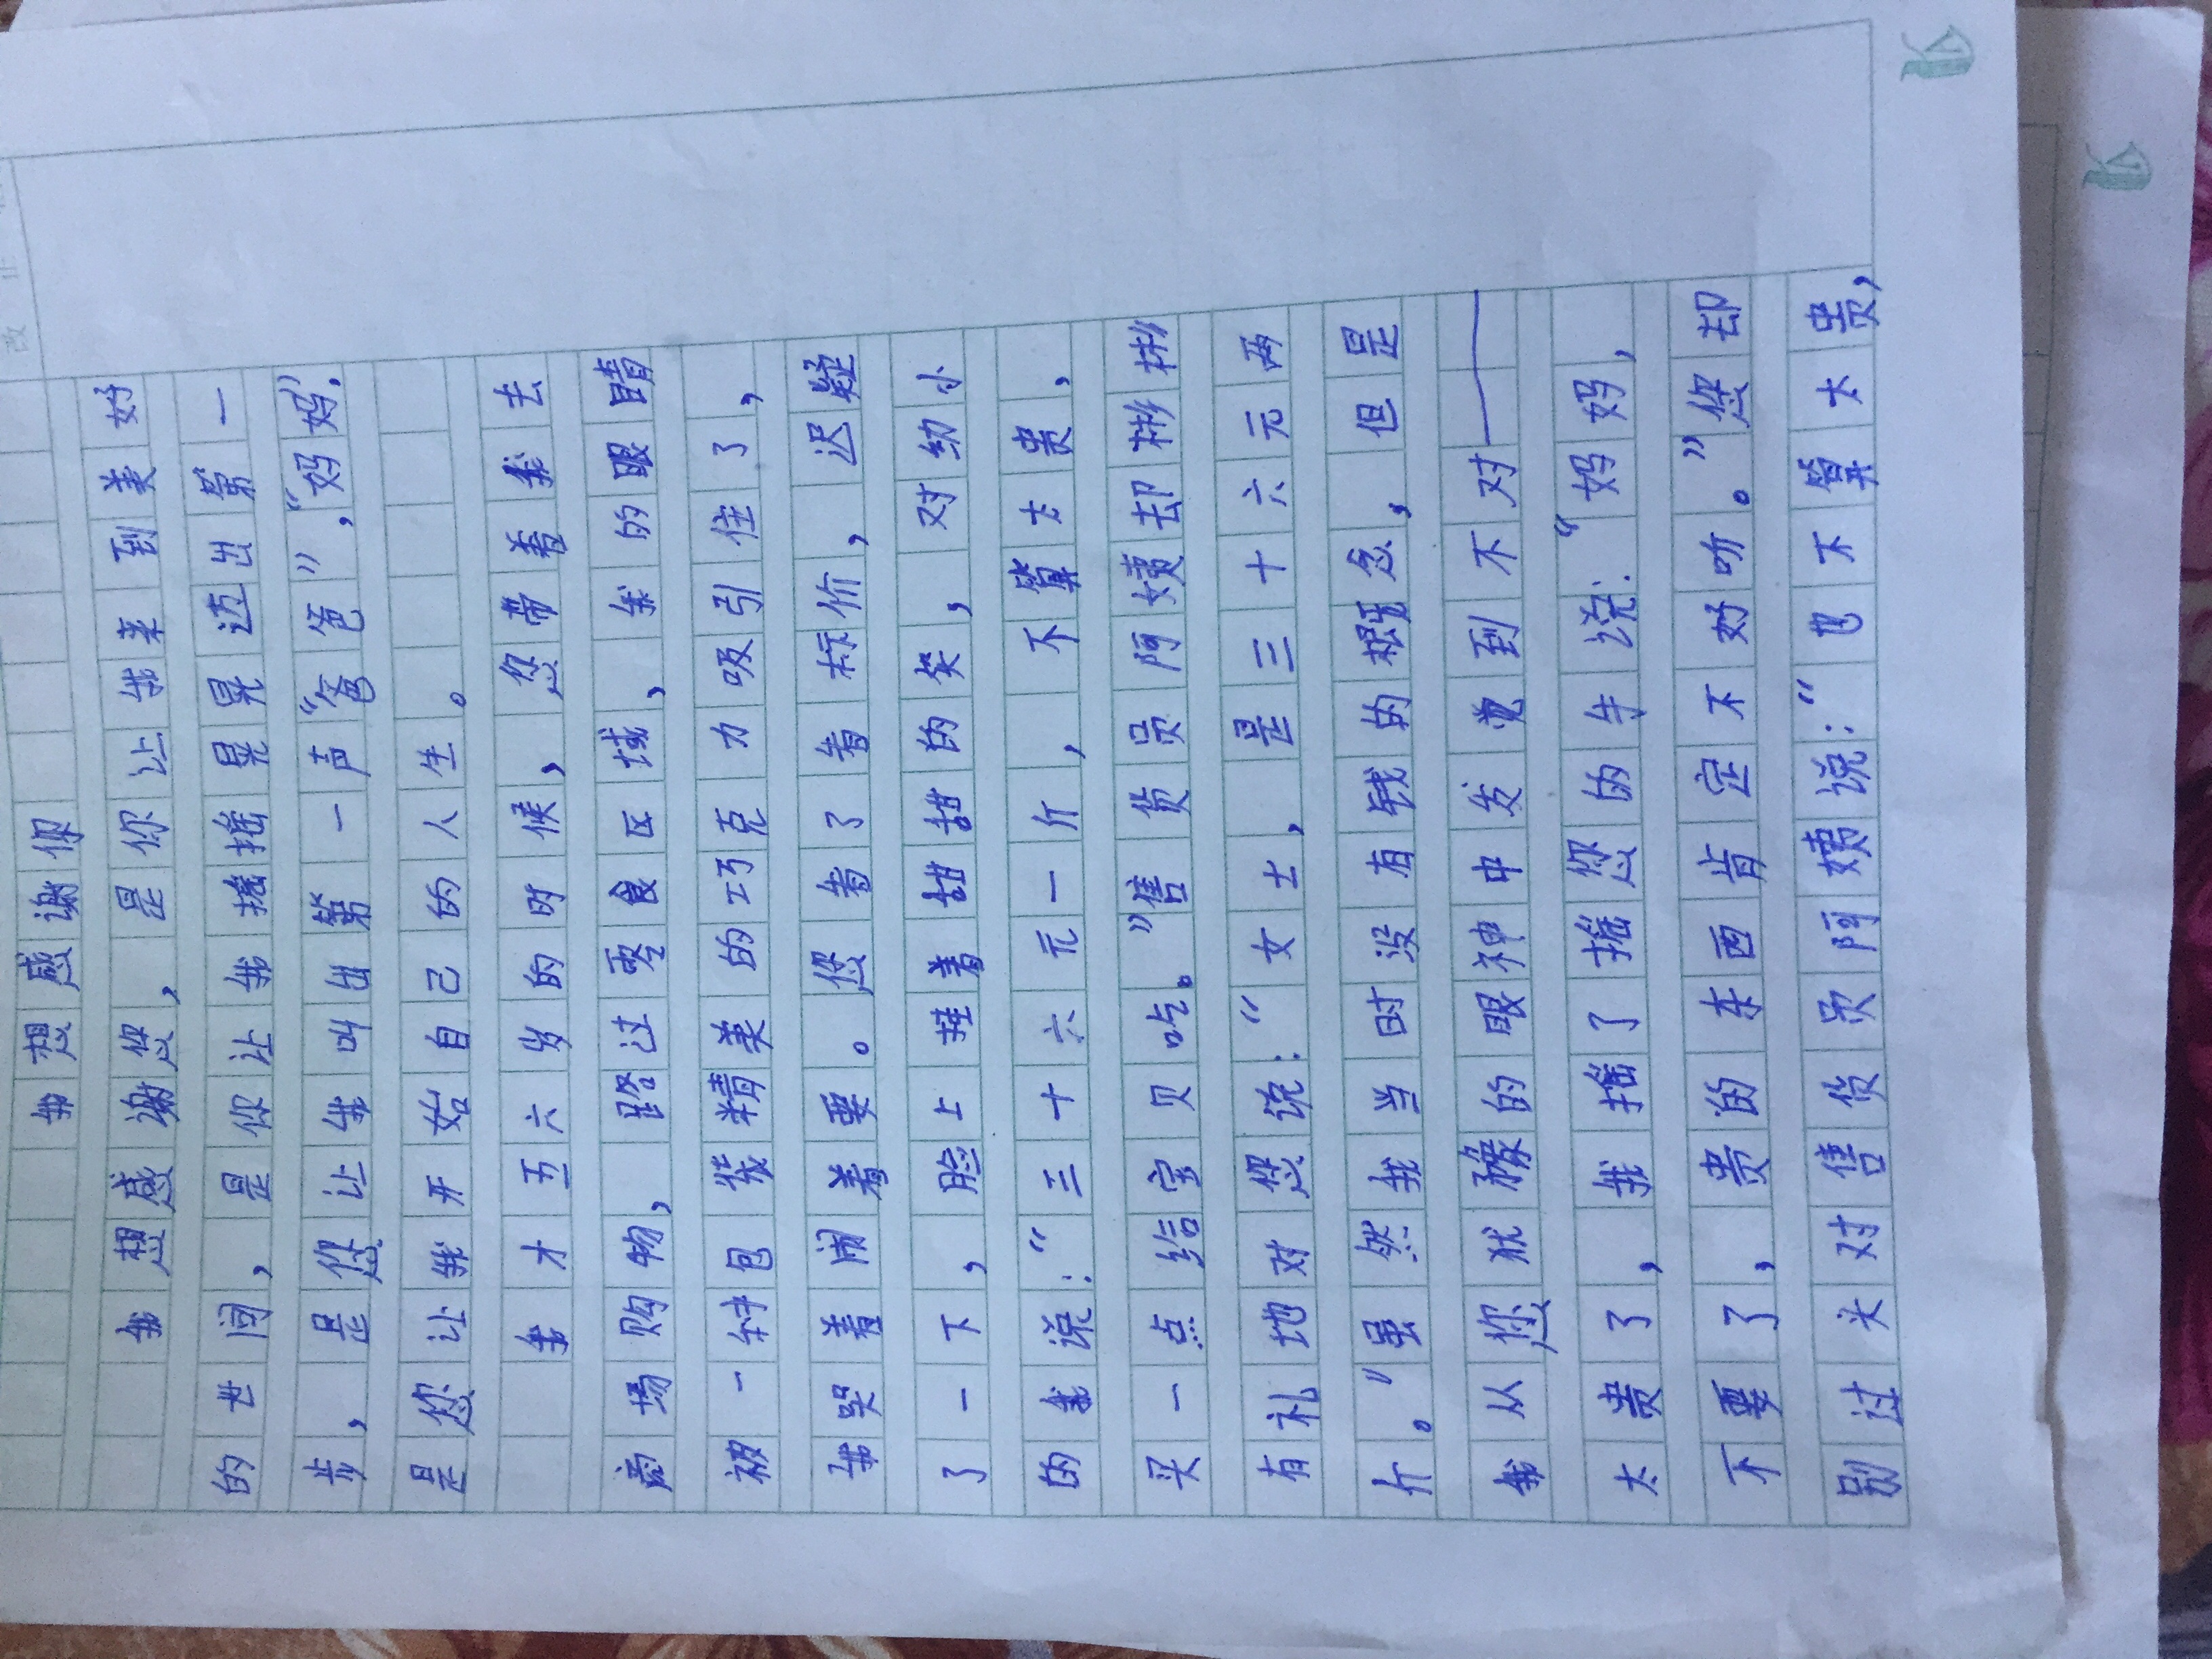 我想感谢你
我想感谢您，是你让我来到美好
的世间，是你让我摇摇晃晃迈出第一
步，是您让我叫出第一声“爸爸”，“妈妈”，
是您让我开始自己的人生。
我才五六岁的时候，您带着我去
商场购物，路过零食区域，我的眼睛
被一种包装精美的巧克力吸引住了，
我哭着闹着要。您看了看标价，迟疑
了一下，脸上挂着甜甜的笑，对幼小
的我说：“三十六元一介，不算太贵，
买一点给宝贝吃。”售货员阿姨却彬彬
有礼地对您说：“女士，是三十六元两
介。”虽然我当时没有钱的概念，但是
我从您犹豫的眼神中发觉到不对——
太贵了，我摇了摇您的手说：“妈妈，
不要了，贵的东西肯定不好吃。”您却
别过头对售货员阿姨说：“也不算太贵，